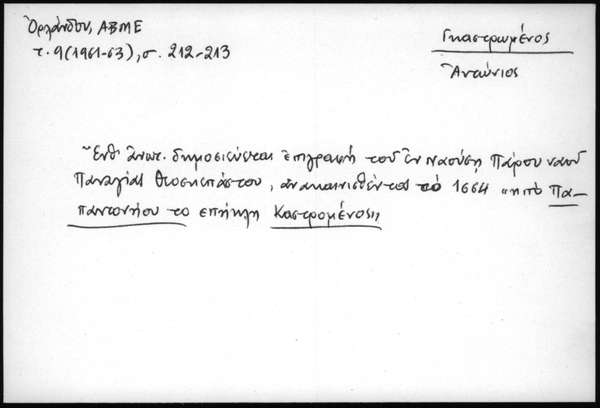 Ὀρλάνδου, ΑΒΜΕ
τ. 9 (1961-63), σ. 212-213
Γκαστρωμένος
Ἀντώνιος
Ἔνθ' ἄνωτ. δημοσιεύεται ἐπιγραφή τοῦ ἐν Ναούση Πάρου ναοῦ
Παναγίας Θεοσκεπάστου, ἀνακαινισθέντος τὸ 1664 "ηπὸ Πα-
παντονήου το επήκλη Καστρομένος"